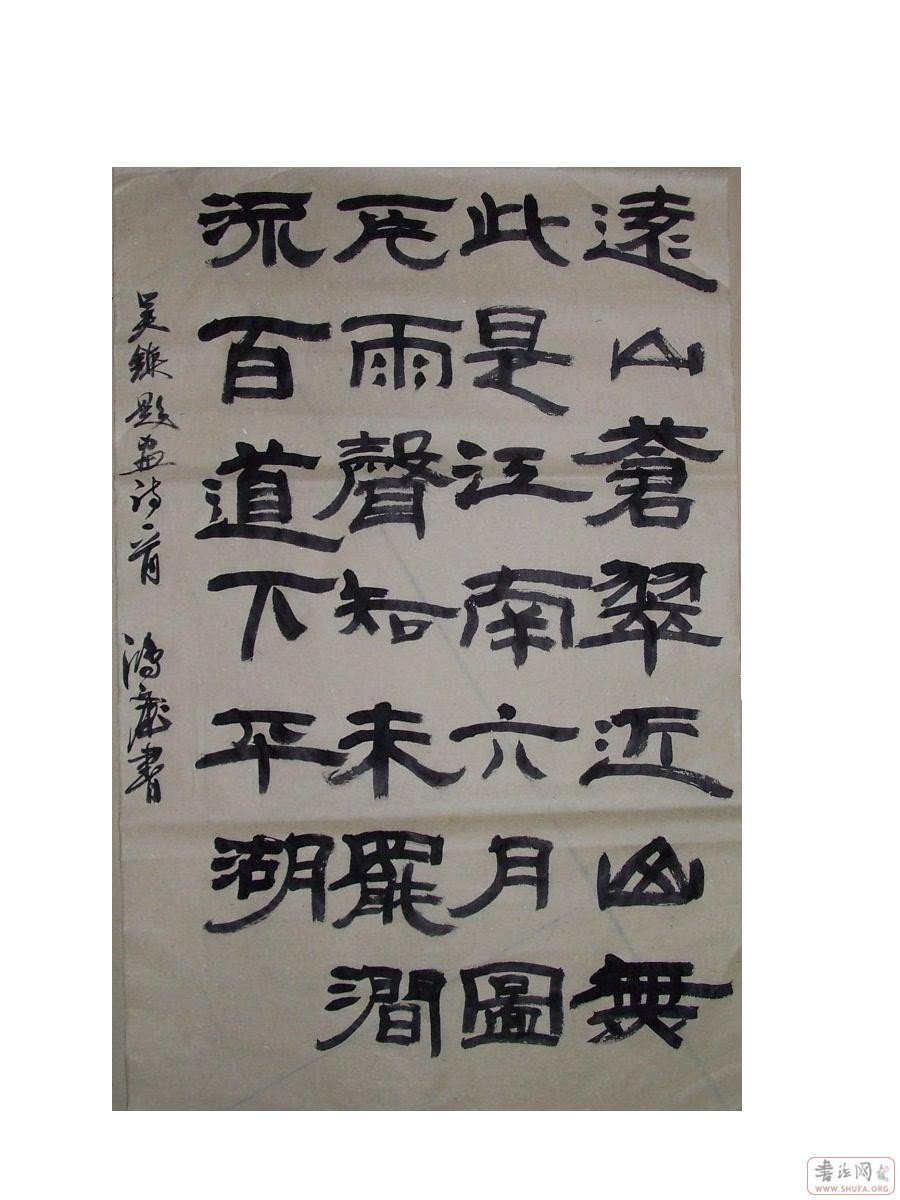 遠山蒼翠近山無
此是江南六月圖
一片雨聲知未罷澗
流百道下平湖
吴鎮题畫诗一首 鴻書
書法网
WWW.SHUFA.ORG